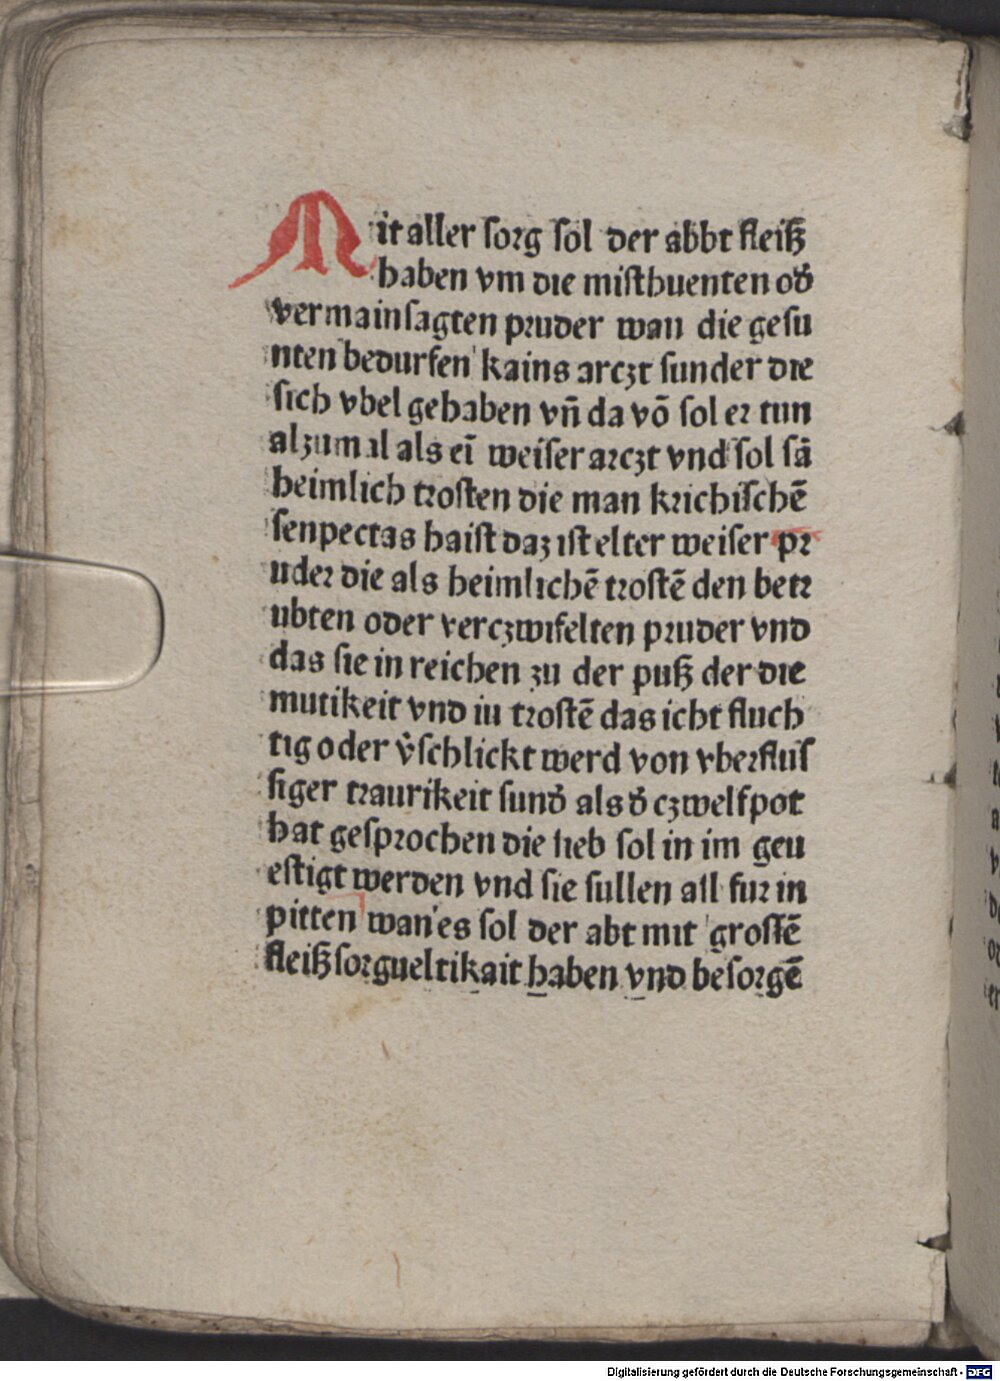 Mit aller ſorg ſol der abbt fleiſz
haben vm die miſthuenten od̛
vermainſagten pruder wan die geſu
nten bedurfen kains arczt ſunder die
ſich vbel gehaben vn̄ da vō ſol er tun
alzumal als eī weiſer arczt vnd ſol ſā
heimlich troſten die man krichiſchē
ſenpectas haiſt daz iſt elter weiſer pr
uder die als heimlichē troſtē den betr
ubten oder verczwifelten pruder vnd
das ſie in reichen zu der puſz der die
mutikeit vnd in troſtē das icht fluch
tig oder v̛ſchlickt werd von vberfluſ
ſiger traurikeit ſund̛ als d̛ czwelfpot
hat geſprochen die lieb ſol in im geu
eſtigt werden vnd ſie ſullen all fur in
pitten wan es ſol der abt mit groſſē
fleiſz ſorgueltikait haben vnd beſorgē
Digitalisierung gefördert durch die Deutsche Forschungsgemeinschaft - DFG